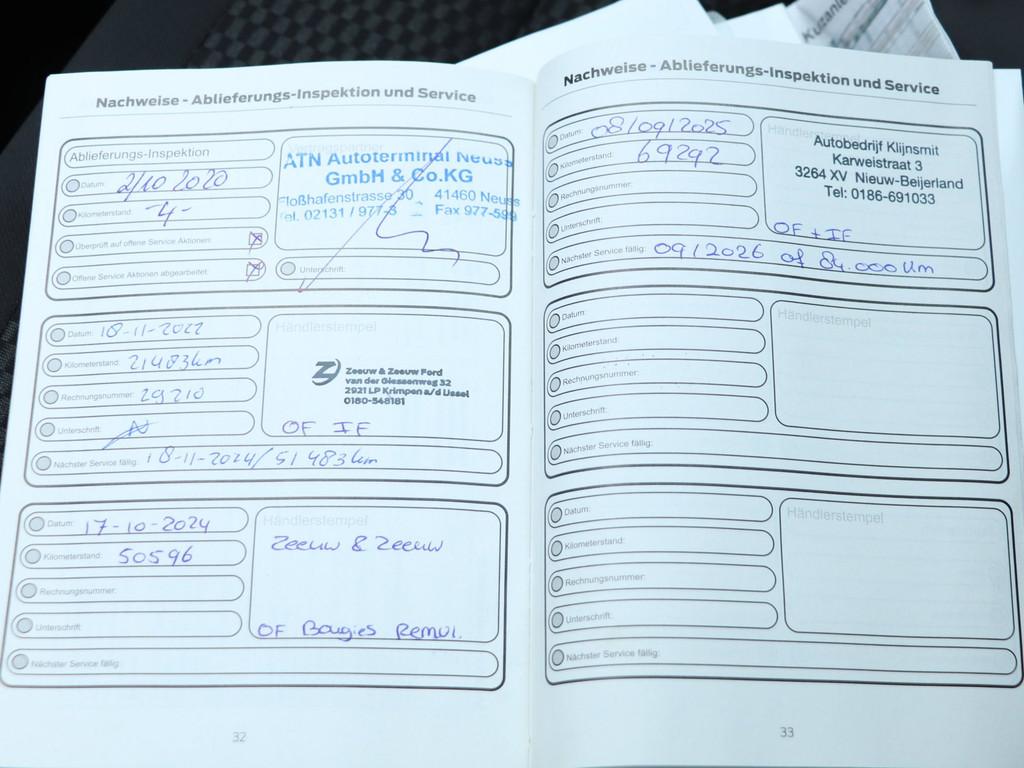 Kuzanie
Nachweise - Ablieferungs-Inspektion und Service
Ablieferungs-Inspektion
Datum: 2/10 2020
Kilometerstand: -4-
Überprüft auf offene Service Aktionen:
Offene Service Aktionen abgearbeitet:
Vertragspartner
ATN Autoterminal Neuss
GmbH & Co.KG
Floßhafenstrasse 30 41460 Neuss
Tel. 02131 / 977-3 Fax 977-599
Unterschrift:
Datum: 18-11-2022
Kilometerstand: 21483km
Rechnungsnummer: 29210
Unterschrift:
Nächster Service fällig: 18-11-2024/51 483km
Händlerstempel
Zeeuw & Zeeuw Ford
van der Giessenweg 32
2921 LP Krimpen a/d IJssel
0180-548181
OF IF
Datum: 17-10-2024
Kilometerstand: 50596
Rechnungsnummer:
Unterschrift:
Nächster Service fällig:
Händlerstempel
Zeeuw & Zeeuw
OF Bougies Remvl.
32
Nachweise - Ablieferungs-Inspektion und Service
Datum: 08/09/2025
Kilometerstand: 69292
Rechnungsnummer:
Unterschrift:
Nächster Service fällig: 09/2026 of 84.000 km
Händlerstempel
Autobedrijf Klijnsmit
Karweistraat 3
3264 XV Nieuw-Beijerland
Tel: 0186-691033
OF + IF
Datum:
Kilometerstand:
Rechnungsnummer:
Unterschrift:
Nächster Service fällig:
Händlerstempel
Datum:
Kilometerstand:
Rechnungsnummer:
Unterschrift:
Nächster Service fällig:
Händlerstempel
33